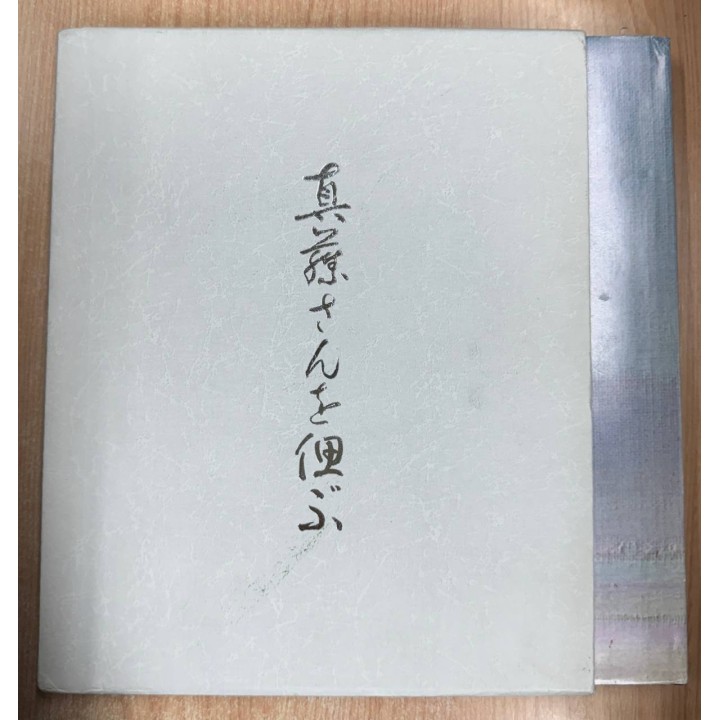 真藤さんを偲ぶ